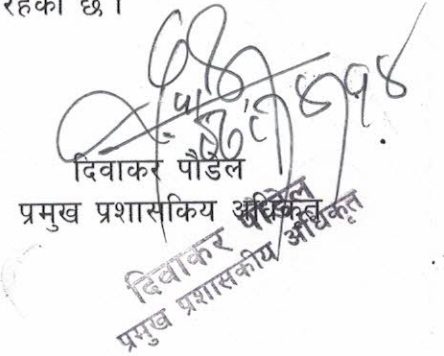 रहेको छ ।
दिवाकर पौडेल
प्रमुख प्रशासकिय अधिकृत
दिवाकर पौडेल
प्रमुख प्रशासकीय अधिकृत